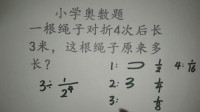 小学奥数题
一根绳子对折4次后长
3米，这根绳子原来多
长？
1: 1/2 4: 1/16
3÷1/2⁴ 2: 1/4
3: 1/8